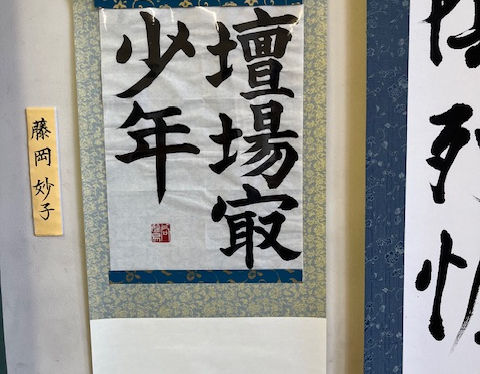 壇場冣
少年
藤岡妙子
烈